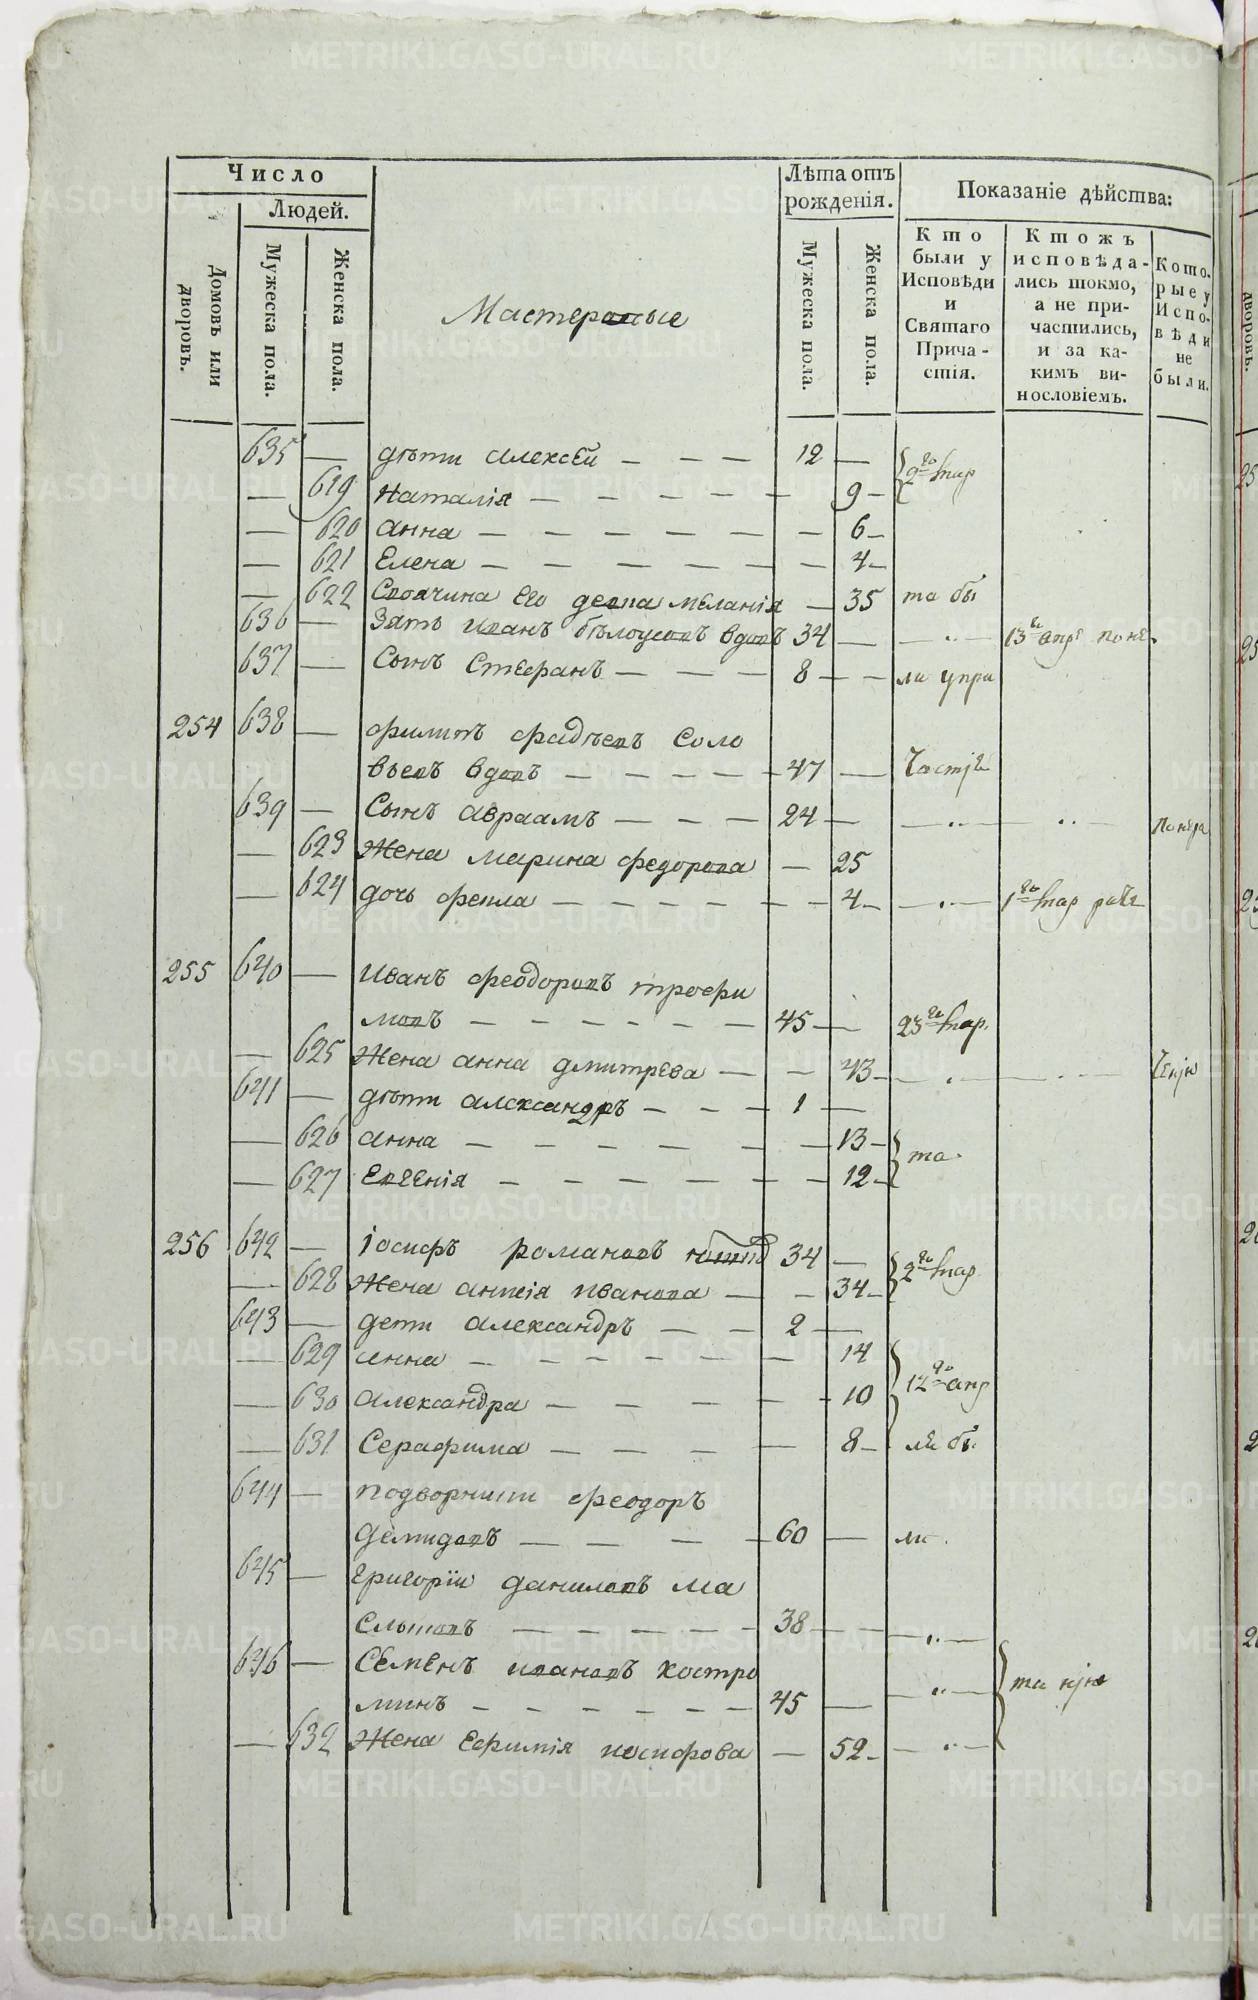 Число
Людей.
Домовъ или дворовъ.
Мужеска пола.
Женска пола.
Мастеровые
Лѣта отъ рожденія.
Мужеска пола.
Женска пола.
Показаніе дѣйства:
Кто были у Исповѣди и Святаго Причастія.
Ктожъ исповѣдались токмо, а не причастились, и за какимъ винословіемъ.
Которые у Исповѣди не были.
635 — дѣти алексѣй — — — 12 — 2го мар
— 619 Наталія — — — — — — 9 —
— 620 анна — — — — — — — 6 —
— 621 Елена — — — — — — — 4 —
— 622 Своячина Его девка меланія — 35 та бы
636 — Зять иванъ бѣлоусовъ вдовъ 34 — — " —
637 — Сынъ Стефанъ — — — 8 — — ли у при
254 638 — филипъ фадѣевъ Соло
вьевъ вдовъ — — — — 47 —
639 — Сынъ авраамъ — — — 24 — — " — "
— 623 Жена марина федорова — 25
— 624 дочь фекла — — — — — — 4 — — " — мар
255 640 — Иванъ феодоровъ трофи
мовъ — — — — — — 45 — 23го мар.
— 625 Жена анна дмитрева — — 43 —
641 — дѣти александръ — — — 1 —
— 626 анна — — — — — — — 13 — та
— 627 Евгенія — — — — — — 12 —
256 642 — Іосифъ романовъ 34 — 2го мар
— 628 Жена анисія иванова — — 34 —
643 — дети александръ — — 2 —
— 629 анна — — — — — — — 14 12го апр
— 630 александра — — — — — 10
— 631 Серафима — — — — 8 — ли бы
644 — подворники феодоръ
демидовъ — — — — 60 — ли
645 — григорій даниловъ ма
слыковъ — — — — — 38 — — — " —
646 — Семенъ ивановъ костро
минъ — — — — — — 45 — — " —
— 632 Жена Ефимія иосифова — 52 — — " —